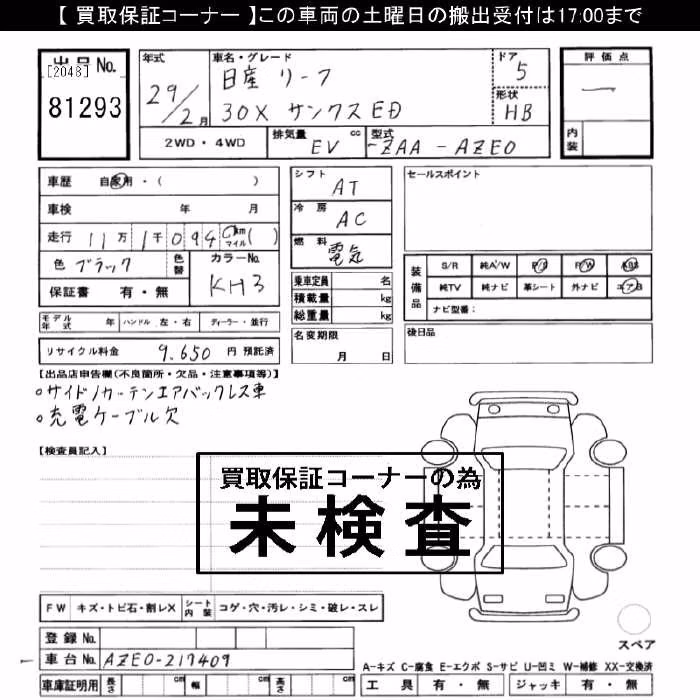 【 買取保証コーナー 】この車両の土曜日の搬出受付は17:00まで
出品 No.
[2048]
81293
年式
29/2月
車名・グレード
日産 リーフ
30X サンクスED
ドア
5
形状
HB
評価点
一
内装
2WD・4WD
排気量 cc
EV
型式
-ZAA-AZE0
車歴 自家用・( )
車検 年 月
走行 11万1千094 km マイル ( )
色 ブラック
色替
カラーNo.
KH3
保証書 有・無
シフト
AT
冷房
AC
燃料
電気
乗車定員 名
積載量 kg
総重量 kg
セールスポイント
装備品
S/R 純A/W P/S P/W ABS
純TV 純ナビ 革シート 外ナビ エアB
ナビ型番:
モデル年式 年 ハンドル 左・右 ディーラー・並行
名変期限
月 日
後日品
リサイクル料金 9.650 円 預託済
【出品店申告欄(不良箇所・欠品・注意事項等)】
○サイド/カーテンエアバックレス車
○充電ケーブル欠
【検査員記入】
買取保証コーナーの為
未検査
FW キズ・トビ石・割レX シート内装 コゲ・穴・汚レ・シミ・破レ・スレ
スペア
登録 No.
車台 No. AZE0-217409
A-キズ C-腐食 E-エクボ S-サビ U-凹ミ W-補修 XX-交換済
車庫証明用 長さ cm 幅 cm 高さ cm
工具 有・無 ジャッキ 有・無